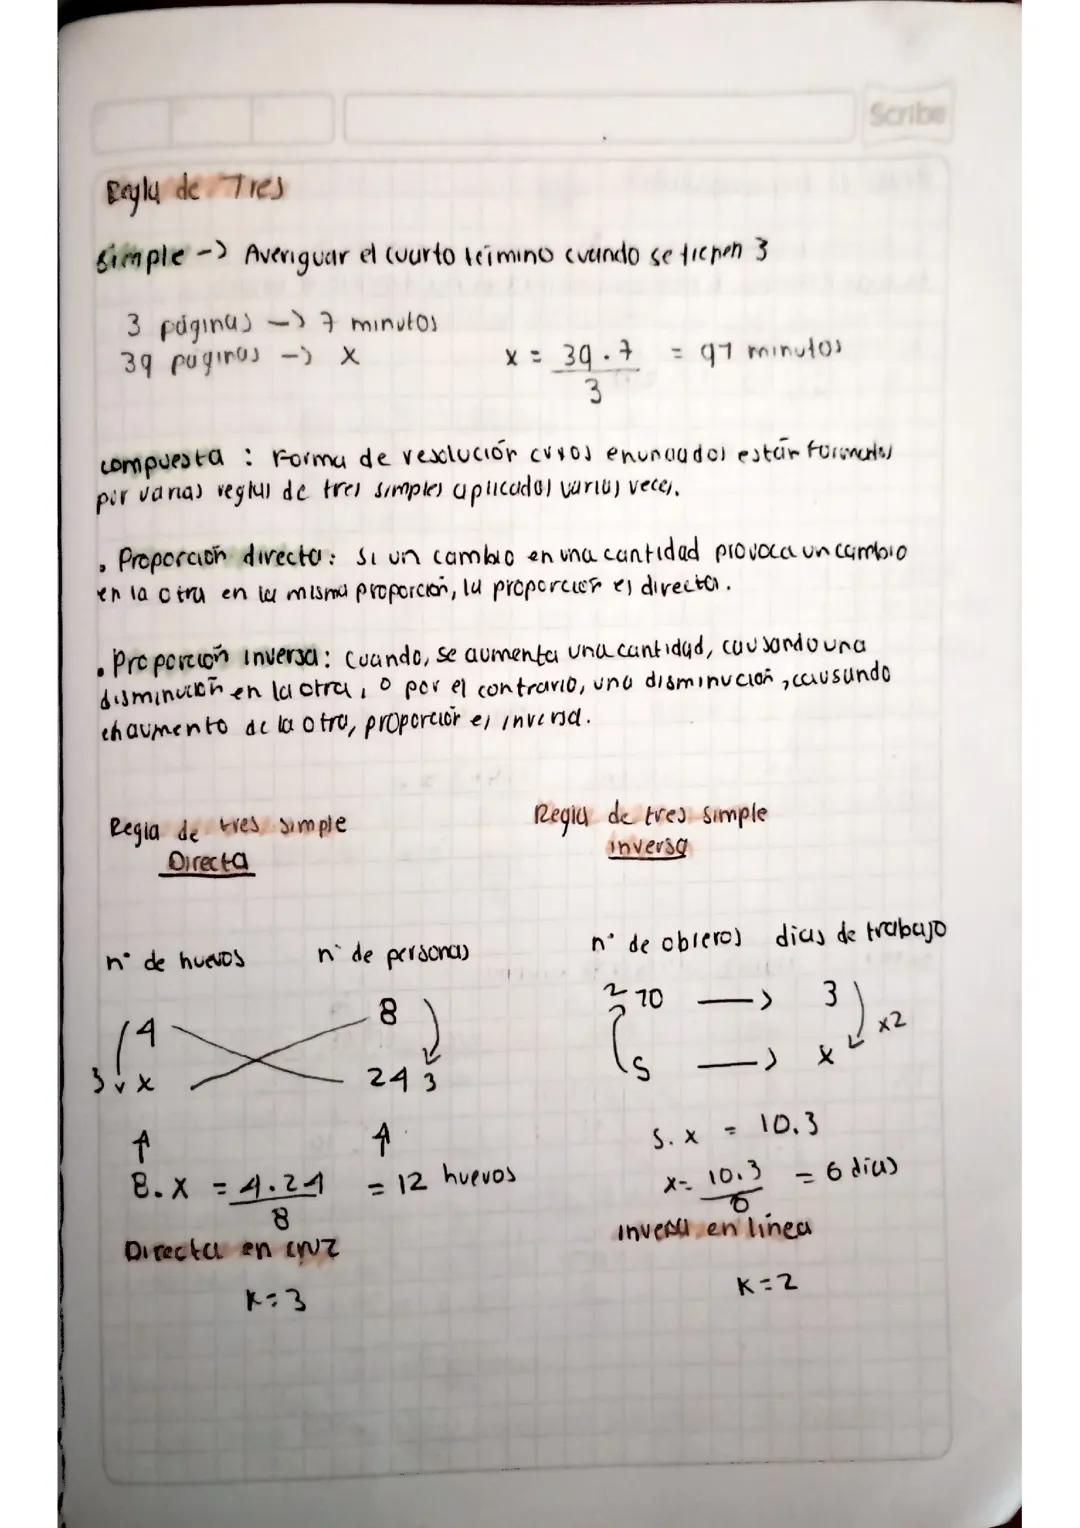 Scribe
Regla de Tres
Simple -> Averiguar el cuarto término cuando se tienen 3
3 páginas -> 7 minutos
39 páginas -> x
x = 39 . 7 = 91 minutos
3
compuesta : Forma de resolución cuyos enunciados están formados
por varias reglas de tres simples aplicadas varias veces.
. Proporción directa: Si un cambio en una cantidad provoca un cambio
en la otra en la misma proporción, la proporción es directa.
. Proporción inversa: Cuando, se aumenta una cantidad, causando una
disminución en la otra, o por el contrario, una disminución, causando
el aumento de la otra, proporción es inversa.
Regla de tres simple
Directa
Regla de tres simple
inversa
n° de huevos n° de personas
n° de obreros días de trabajo
4 8
3 x 24 3
2 10 -> 3
x2
5 -> x
8.x = 4.24 = 12 huevos
8
Directa en cruz
K=3
5.x = 10.3
x= 10.3 = 6 días
5
inversa en línea
K=2